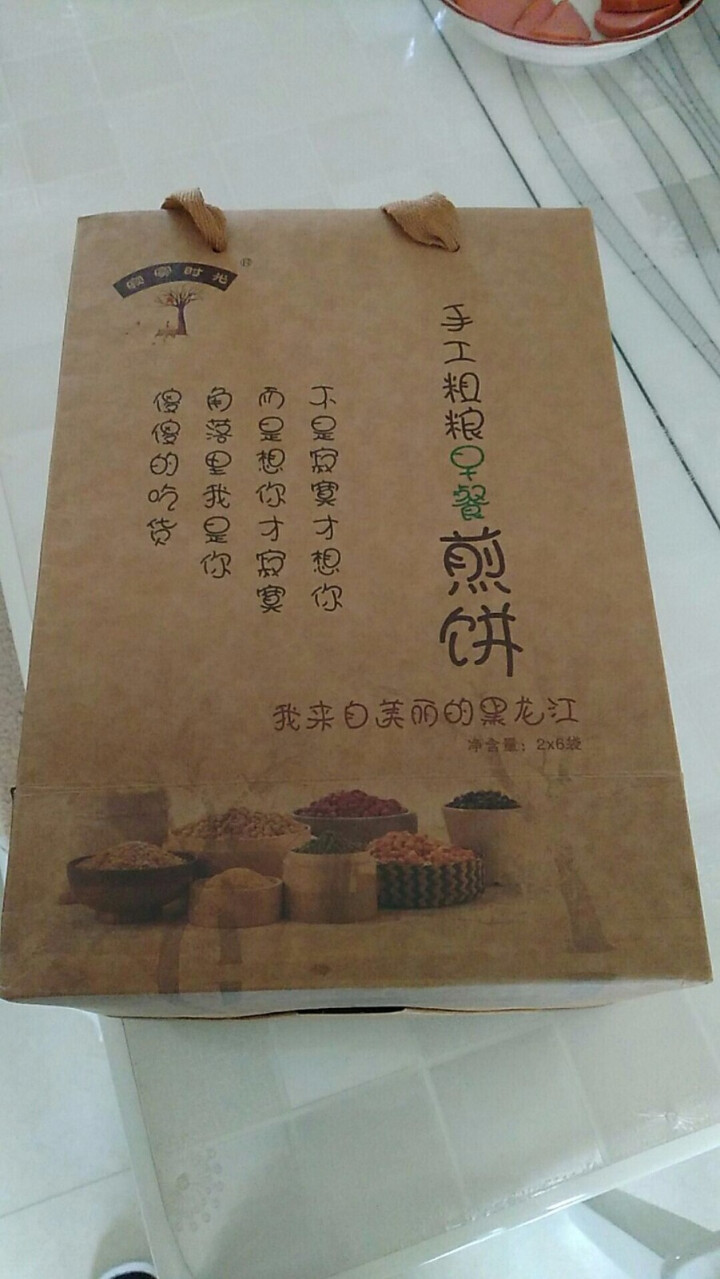 时光
®
手工粗粮早餐煎饼
不是寂寞才想你
而是想你才寂寞
角落里我是你
傻傻的吃货
我来自美丽的黑龙江
净含量：2x6袋